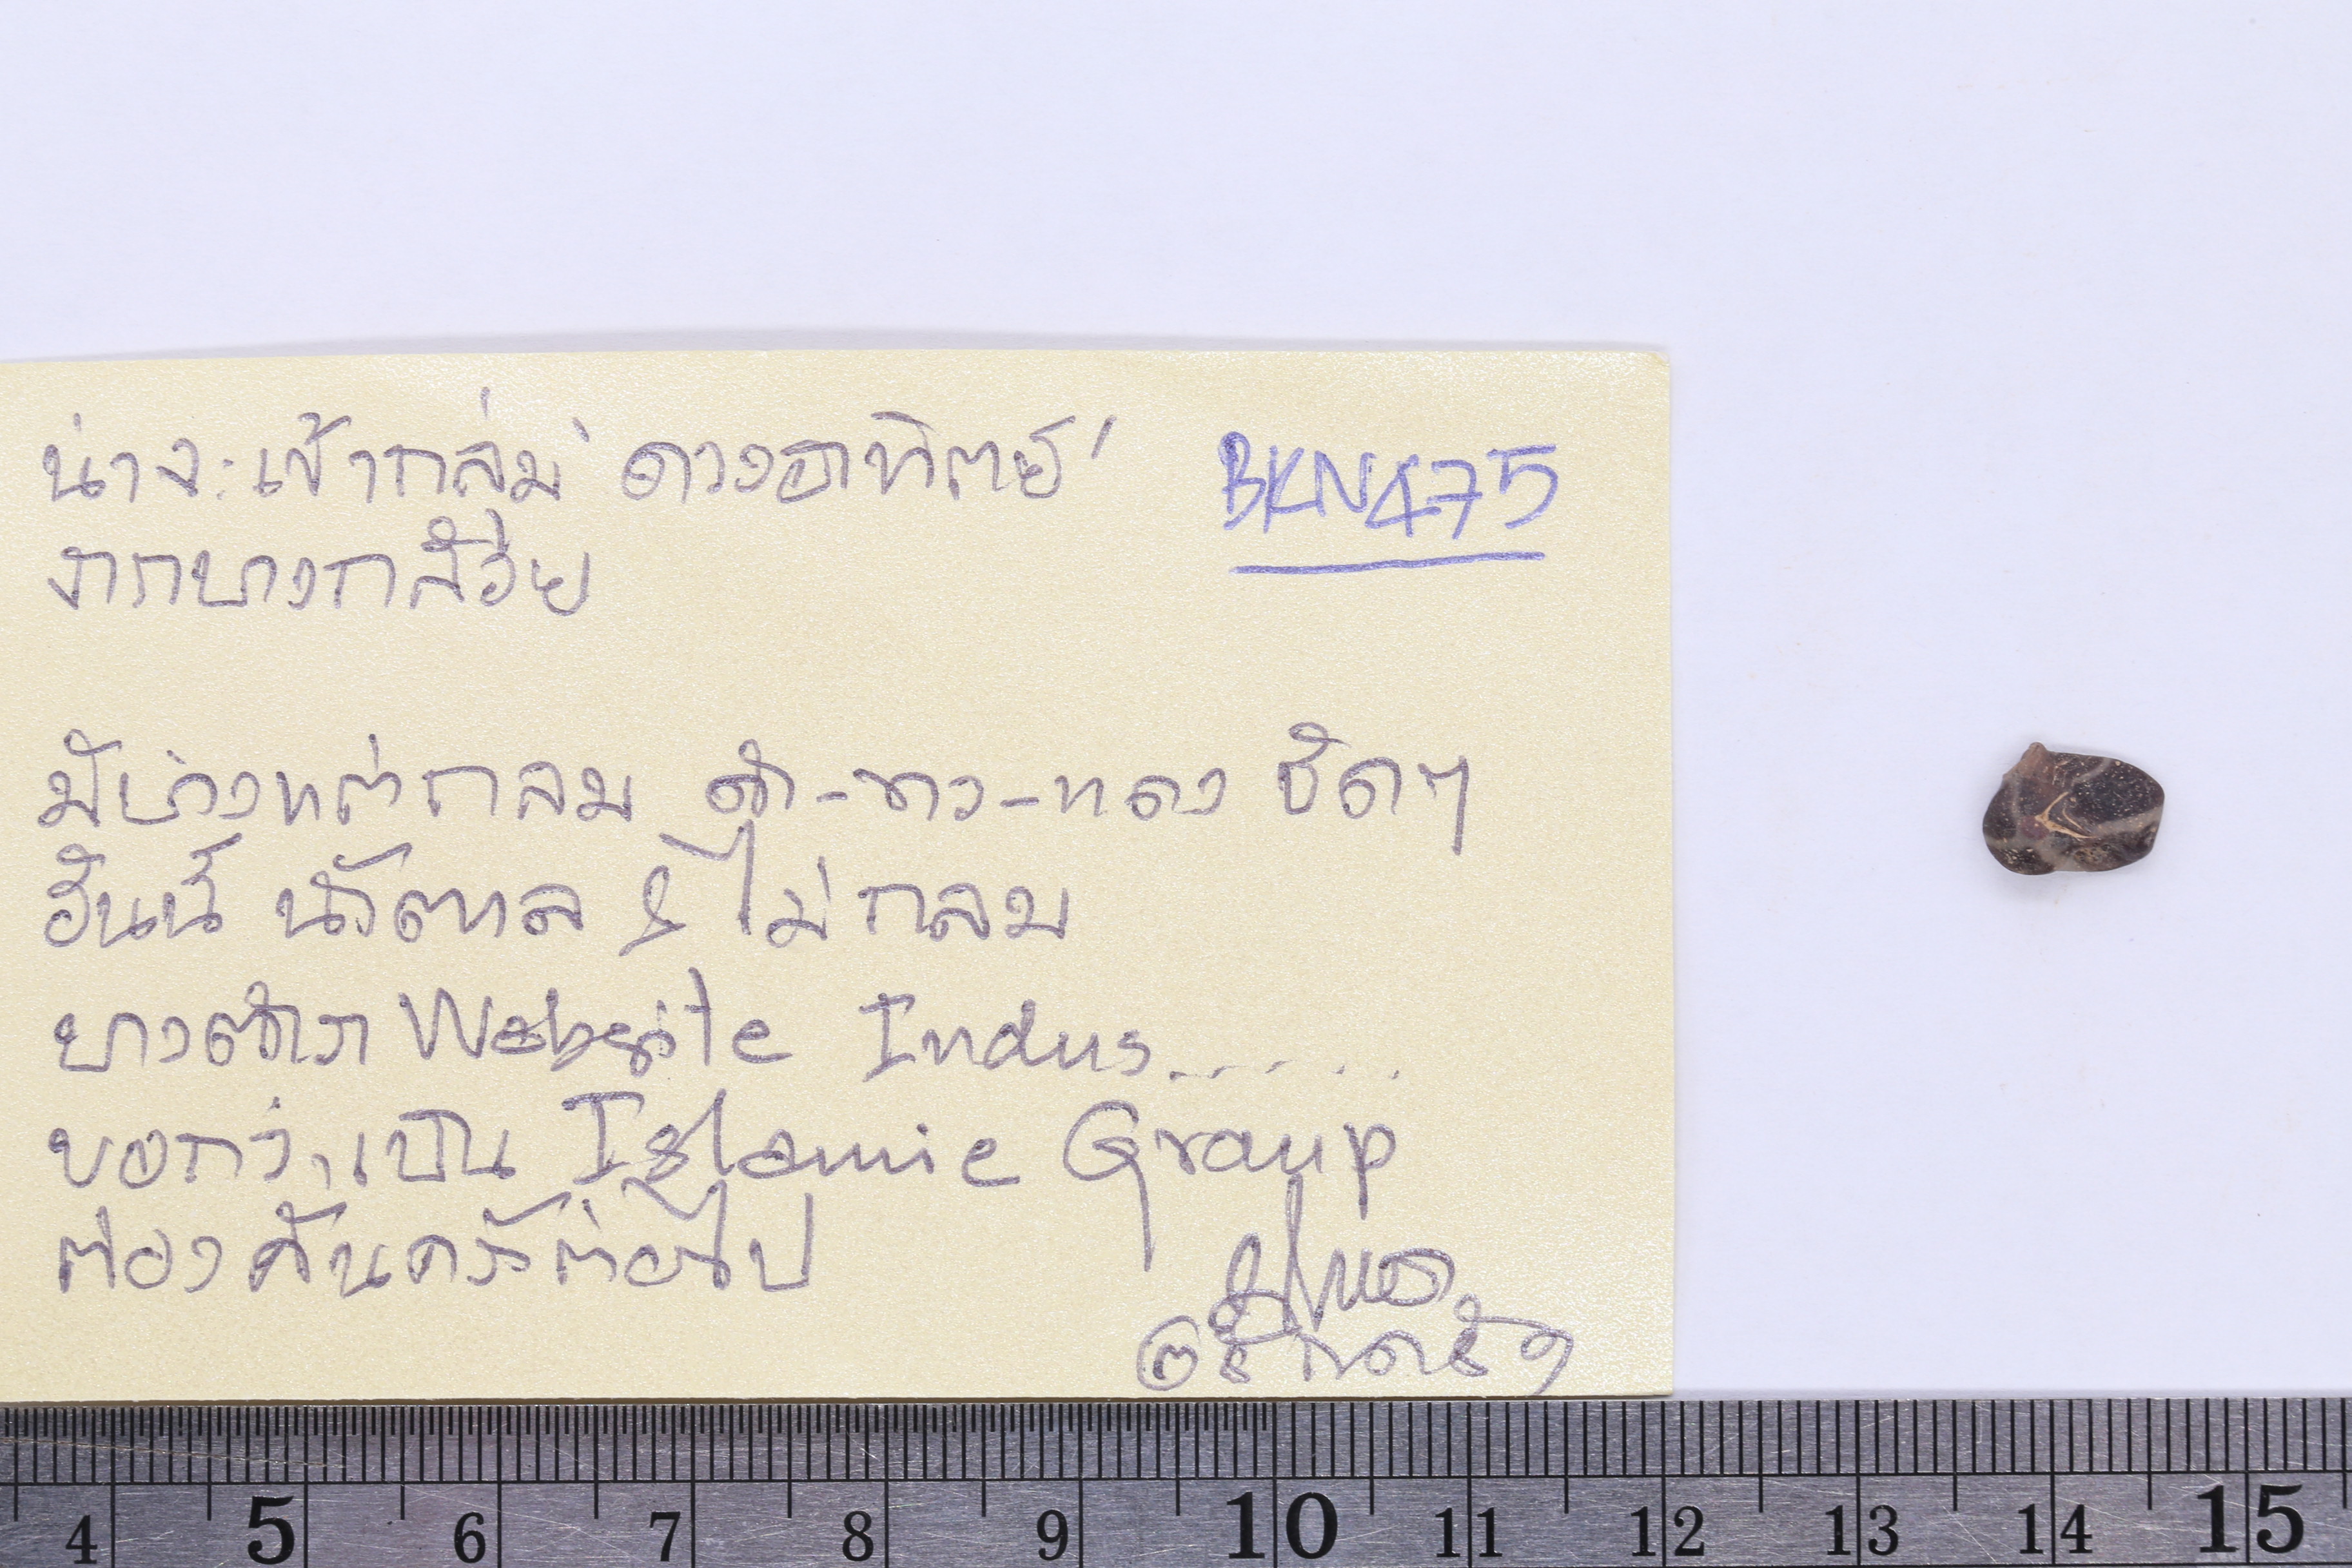 น่าจะเข้ากลุ่ม 'ดวงอาทิตย์'
BKN475
จากบางกล้วย
มีบ่วงแต่กลม ดำ-ขาว-แดง ชัดๆ
อันนี้ น้ำตาล & ไม่กลม
บางตำรา Website Indus......
บอกว่าเป็น Islamic Group
ต้องค้นคว้าต่อไป
4 5 6 7 8 9 10 11 12 13 14 15